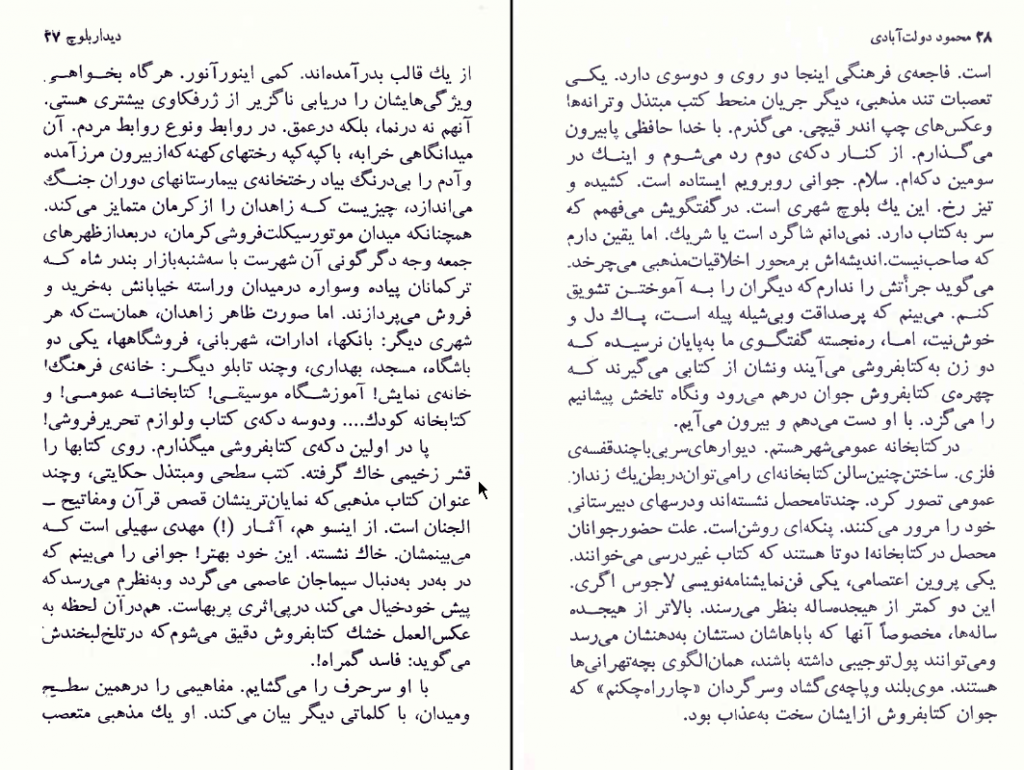 دیدار بلوچ ۲۷
از یك قالب بدرآمده‌اند. کمی اینورآنور. هرگاه بخواهی
ویژگی‌هایشان را دریابی ناگزیر از ژرفکاوی بیشتری هستی.
آنهم نه درنما، بلکه درعمق. در روابط ونوع روابط مردم. آن
میدانگاهی خرابه، باکپه‌کپه رختهای‌کهنه‌که‌ازبیرون مرزآمده
وآدم را بی‌درنگ بیاد رختخانه‌ی بیمارستانهای دوران جنگ
می‌اندازد، چیزیست که زاهدان را ازکرمان متمایز می‌کند.
همچنانکه میدان موتورسیکلت‌فروشی‌کرمان، دربعدازظهرهای
جمعه وجه دگرگونی آن شهرست با سه‌شنبه‌بازار بندر شاه که
ترکمانان پیاده وسواره درمیدان وراسته خیابانش به‌خرید و
فروش می‌پردازند. اما صورت ظاهر زاهدان، همان‌ست‌که هر
شهری دیگر: بانکها، ادارات، شهربانی، فروشگاهها، یکی دو
باشگاه، مسجد، بهداری، وچند تابلو دیگر: خانه‌ی فرهنگ!
خانه‌ی نمایش! آموزشگاه موسیقی! کتابخانه عمومی! و
کتابخانه کودك.... ودوسه دکه‌ی کتاب ولوازم تحریرفروشی!
پا در اولین دکه‌ی کتابفروشی میگذارم. روی کتابها را
قشر زخیمی خاك گرفته. کتب سطحی ومبتذل حکایتی، وچند
عنوان کتاب مذهبی‌که نمایان‌ترینشان قصص قرآن ومفاتیح ـ
الجنان است. از اینسو هم، آثار (!) مهدی سهیلی است که
می‌بینمشان. خاك نشسته. این خود بهتر! جوانی را می‌بینم که
در به‌در به‌دنبال سیماجان عاصمی می‌گردد وبه‌نظرم می‌رسدکه
پیش خودخیال می‌کند درپی‌اثری پربهاست. هم‌درآن لحظه به
عکس‌العمل خشك کتابفروش دقیق می‌شوم‌که درتلخ‌لبخندش
می‌گوید: فاسد گمراه!.
با او سرحرف را می‌گشایم. مفاهیمی را درهمین سطح
ومیدان، با کلماتی دیگر بیان می‌کند. او یك مذهبی متعصب
۲۸ محمود دولت‌آبادی
است. فاجعه‌ی فرهنگی اینجا دو روی و دوسوی دارد. یکی
تعصبات تند مذهبی، دیگر جریان منحط کتب مبتذل وترانه‌ها
وعکس‌های چپ اندر قیچی. می‌گذرم. با خدا حافظی پابیرون
می‌گذارم. از کنار دکه‌ی دوم رد می‌شوم و اینك در
سومین دکه‌ام. سلام. جوانی روبرویم ایستاده است. کشیده و
تیز رخ. این یك بلوچ شهری است. درگفتگویش می‌فهمم که
سر به‌کتاب دارد. نمی‌دانم شاگرد است یا شریك. اما یقین دارم
که صاحب‌نیست.اندیشه‌اش برمحور اخلاقیات‌مذهبی می‌چرخد.
می‌گوید جرأتش را ندارم‌که دیگران را به آموختن تشویق
کنم. می‌بینم که پرصداقت وبی‌شیله پیله است، پاك دل و
خوش‌نیت، اما، ره‌نجسته گفتگوی ما به‌پایان نرسیده که
دو زن به‌کتابفروشی می‌آیند ونشان از کتابی می‌گیرند که
چهره‌ی کتابفروش جوان درهم می‌رود ونگاه تلخش پیشانیم
را می‌گزد. با او دست می‌دهم و بیرون می‌آیم.
درکتابخانه عمومی‌شهرهستم. دیوارهای‌سربی‌باچندقفسه‌ی
فلزی. ساختن‌چنین‌سالن‌کتابخانه‌ای رامی‌توان‌دربطن‌یك زندان
عمومی تصور کرد. چندتامحصل نشسته‌اند ودرسهای دبیرستانی
خود را مرور می‌کنند. پنکه‌ای روشن‌است. علت حضورجوانان
محصل درکتابخانه! دوتا هستند که کتاب غیردرسی می‌خوانند.
یکی پروین اعتصامی، یکی فن‌نمایشنامه‌نویسی لاجوس اگری.
این دو کمتر از هیجده‌ساله بنظر می‌رسند. بالاتر از هیجده
ساله‌ها، مخصوصاً آنها که باباهاشان دستشان به‌دهنشان می‌رسد
ومی‌توانند پول‌توجیبی داشته باشند، همان‌الگوی بچه‌تهرانی‌ها
هستند. موی‌بلند وپاچه‌ی‌گشاد وسرگردان «چارراه‌چکنم» که
جوان کتابفروش ازایشان سخت به‌عذاب بود.